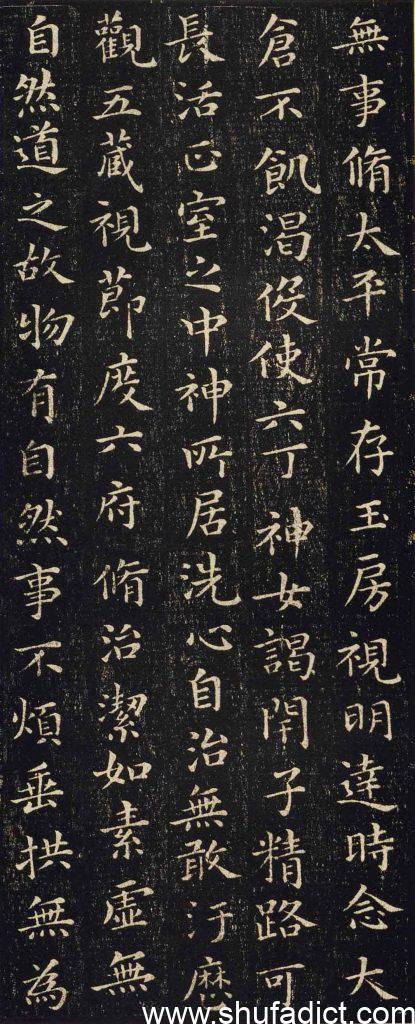 無事脩太平常存玉房視明達時念大
倉不飢渴役使六丁神女謁閇子精路可
長活正室之中神所居洗心自治無敢汙歷
觀五藏視節度六府脩治潔如素虛無
自然道之故物有自然事不煩垂拱無為
www.shufadict.com